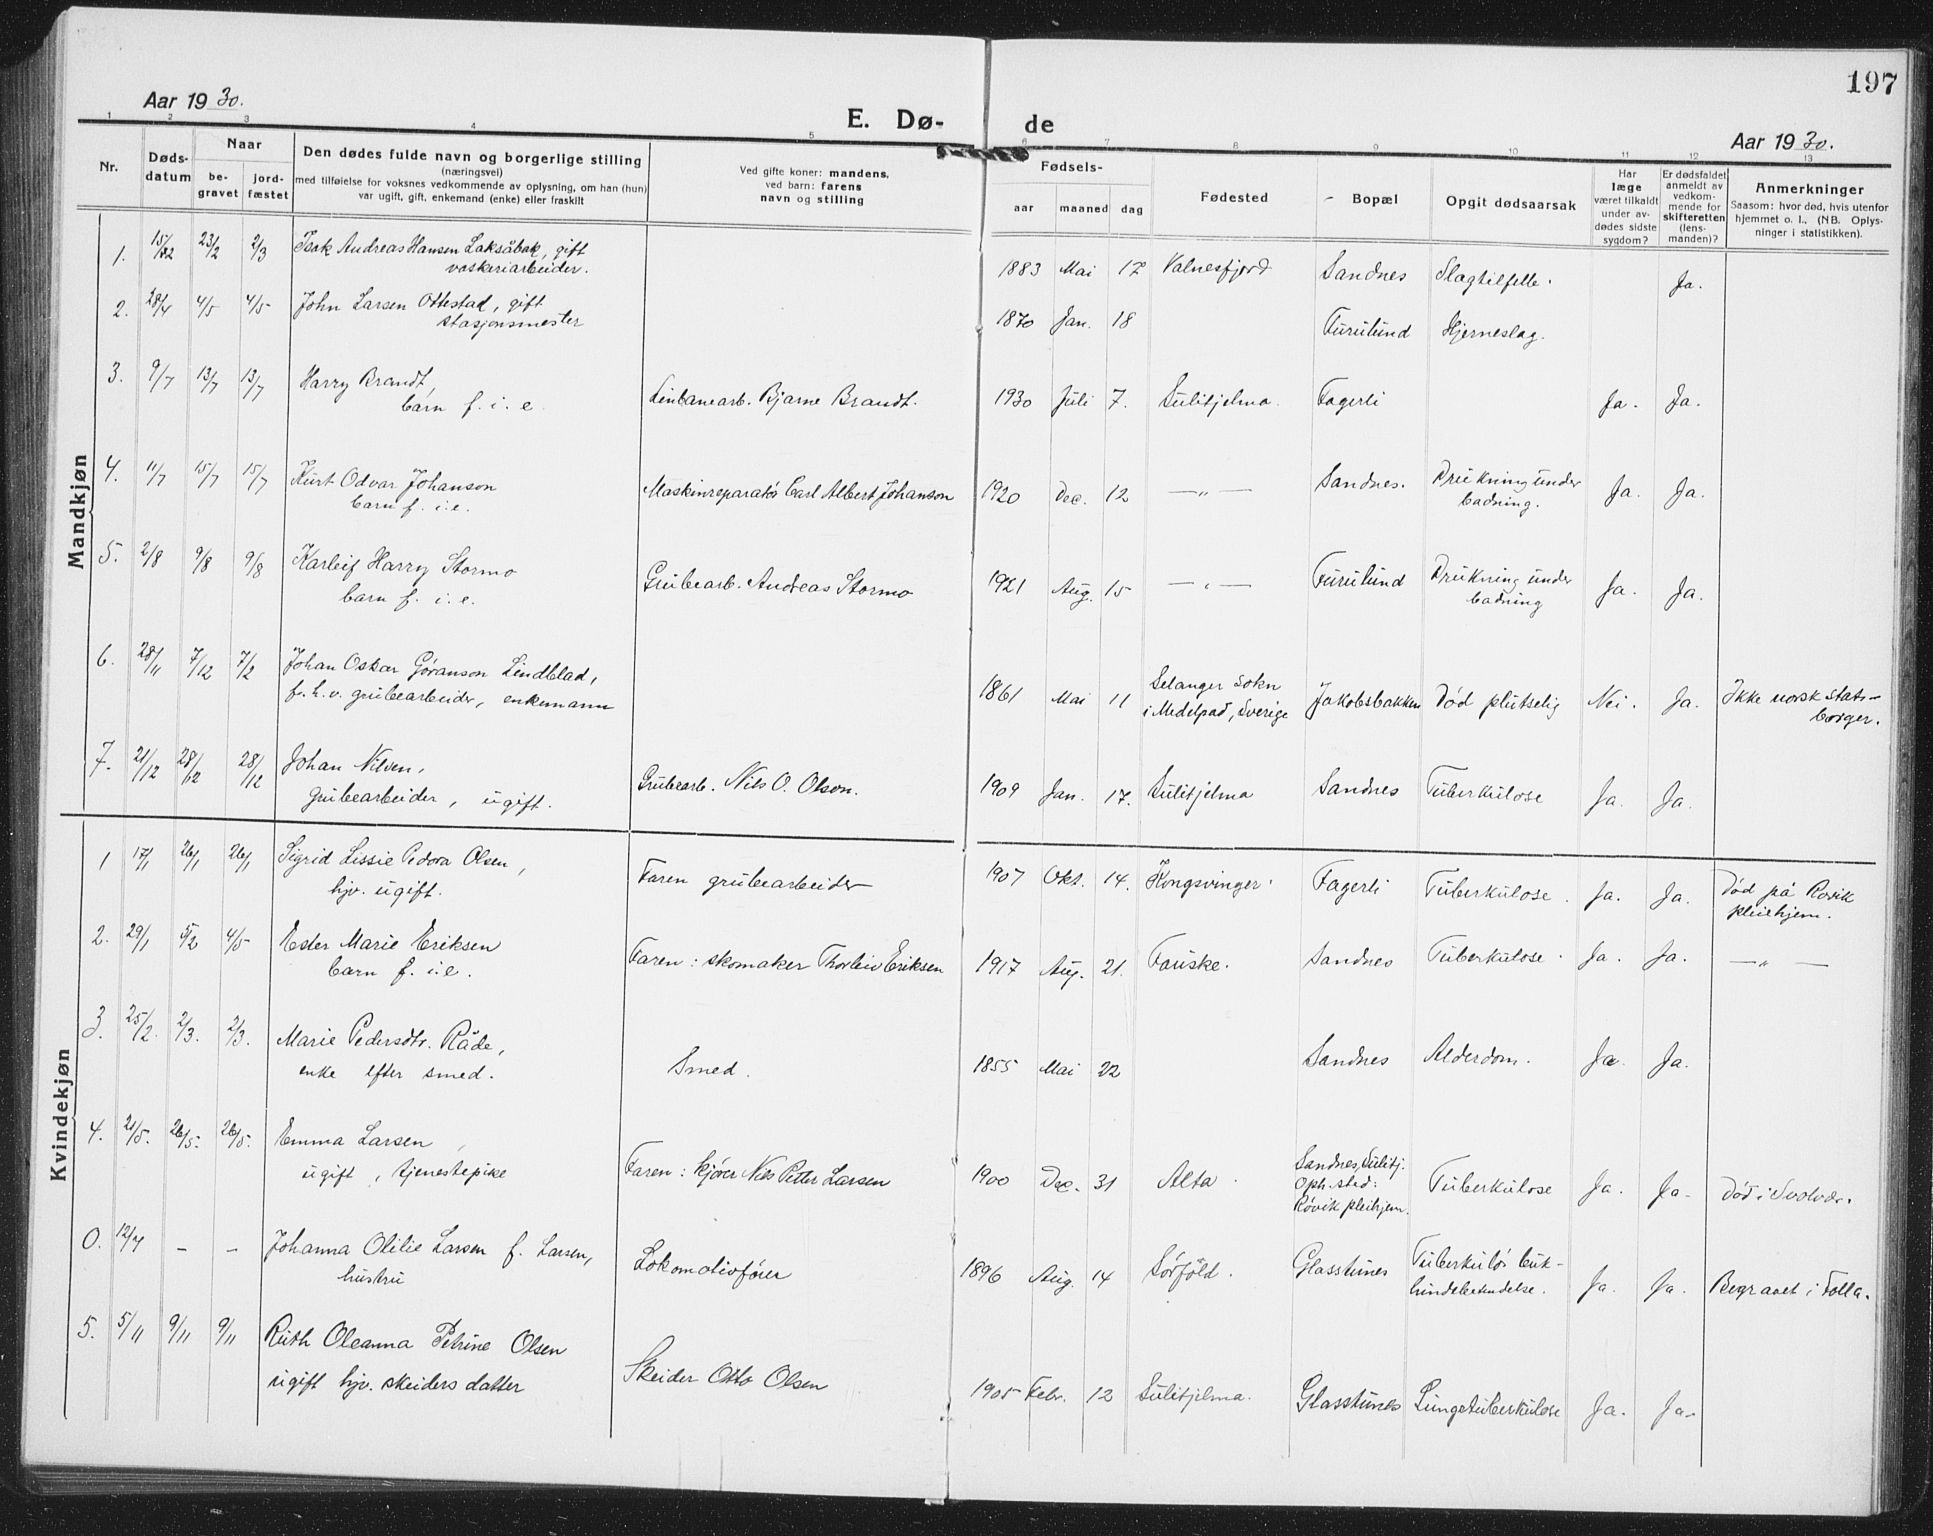 197
Aar 1930.
E. Dø-
de
Aar 1930.
1 2 3 4 5 6 7 8 9 10 11 12 13
Nr.
Døds-
datum
Naar
be-
gravet
jord-
fæstet
Den dødes fulde navn og borgerlige stilling
(næringsvei)
med tilføielse for voksnes vedkommende av oplysning, om han (hun)
var ugift, gift, enkemand (enke) eller fraskilt
Ved gifte koner: mandens,
ved barn: farens
navn og stilling
Fødsels-
aar maaned dag
Fødested
Bopæl
Opgit dødsaarsak
Har
læge
været tilkaldt
under av-
dødes sidste
sygdom?
Er dødsfaldet
anmeldt av
vedkom-
mende for
skifteretten
(lens-
manden)?
Anmerkninger
Saasom: hvor død, hvis utenfor
hjemmet o. l., (NB. Oplys-
ninger i statistikken).
Mandkjøn
1. 23/2 2/3 Isak Andreas Hansen Laksåbak, gift 1883 Mai 17 Valnesfjord Sandnes Slagtilfelle. Ja.
vaskeriarbeider.
2. 28/4 4/5 4/5 John Larsen Ottestad, gift 1870 Jan. 18 Furulund Hjerneslag.
stasjonsmester
3. 9/7 13/7 13/7 Harry Brandt, Linbanearb. Bjarne Brandt. 1930 Juli 7. Sulitjelma. Fagerli Ja. Ja.
barn f. i. e.
4. 11/7 15/7 15/7 Kurt Odvar Johanson Maskinreparatør Carl Albert Johanson 1920 Dec. 12 —„— Sandnes. Drukning under Ja. Ja.
barn f. i.e. badning.
5. 2/8 9/8 9/8 Karleif Harry Stormo Grubearb. Andreas Stormo 1921 Aug. 15 —„— Furulund Drukning under Ja. Ja.
barn f. i. e. badning
6. 28/11 7/12 7/12 Johan Oskar Gøranson Lindblad, 1861 Mai 11 Selanger sokn Jakobsbakken Død plutselig Nei. Ja. Ikke norsk stats-
f. h. v. grubearbeider, enkemann i Medelpad, Sverige borger.
7. 21/12 28/12 28/12 Johan Nilsen, Grubearb. Nils O. Olson. 1909 Jan. 17. Sulitjelma Sandnes Tuberkulose Ja. Ja.
grubearbeider, ugift.
Kvindekjøn
1 17/1 26/1 26/1 Sigrid Lissie Pedora Olsen, Faren grubearbeider 1907 Okt. 14. Kongsvinger. Fagerli Tuberkulose. Ja. Ja. Død på Røvik
hjv. ugift. pleiehjem.
2. 29/1 5/2 4/5 Ester Marie Eriksen Faren: skomaker Thorleiv Eriksen 1917 Aug. 21. Fauske. Sandnes Tuberkulose. Ja. Ja. —„—
barn f. i.e.
3. 25/2. 2/3. 2/3. Marie Pedersdtr. Råde, Smed. 1855 Mai 22 Sandnes Alderdom. Ja. Ja.
enke efter smed.
4. 21/5. 26/5. 26/5. Emma Larsen Faren: kjører Nils Peter Larsen 1900 Dec. 31 Alta. Sandnes, Sulitj. Tuberkulose Ja. Ja. Død i Svolvær.
ugift, tjenestepike Oph.sted:
Røvik pleihjem.
0. 12/7 – – Johanna Otilie Larsen f. Larsen, Lokomotivfører 1896 Aug. 14 Sørfold. Glasstunes Tuberkuløs buk- Ja. Ja. Begravet i Folla.
hustru hindebetendelse.
5. 5/11 9/11 9/11 Ruth Oleanna Petrine Olsen Skeider Otto Olsen 1905 Febr. 12 Sulitjelma. Glasstunes Lungetuberkulose Ja. Ja.
ugift hjv. skeiders datter